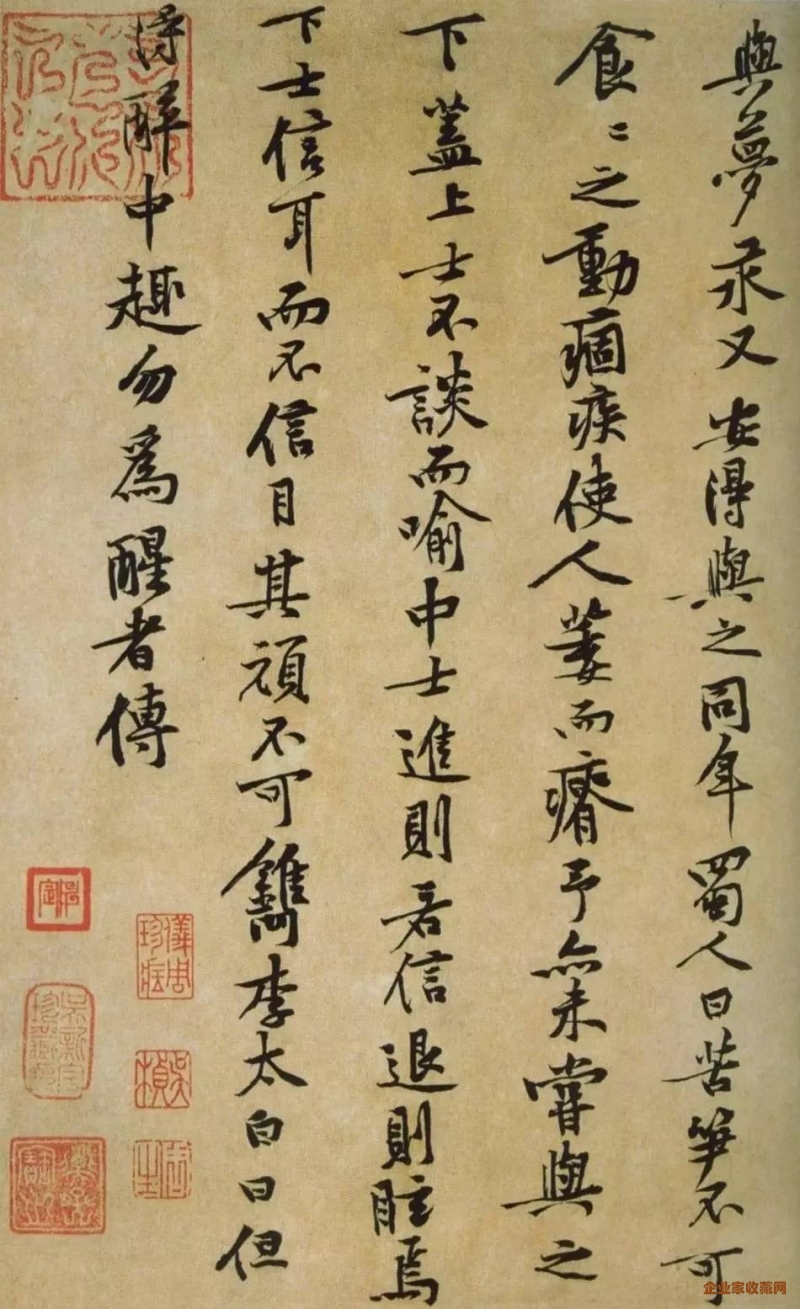 與夢汞又安得與之同年蜀人曰苦笋不可
食〻之動痼疾使人萎而瘠予亦未嘗與之
下蓋上士不談而喻中士進則若信退則眩焉
下士信耳而不信目其頑不可鐫李太白曰但
得醉中趣勿為醒者傳
儀周珍藏
企业家收藏网